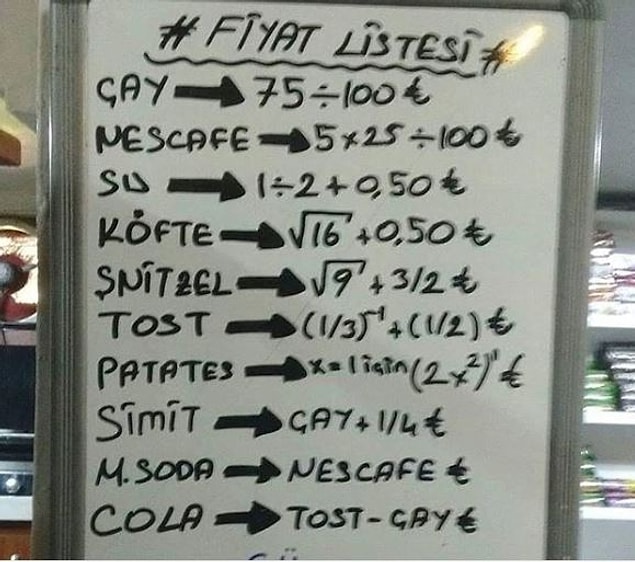 # FİYAT LİSTESİ #
ÇAY → 75÷100 ₺
NESCAFE → 5x25÷100 ₺
SU → 1÷2+0,50 ₺
KÖFTE → √16+0,50 ₺
ŞNİTZEL → √9+3/2 ₺
TOST → (1/3)⁻¹+(1/2) ₺
PATATES → x=1 için (2x²)' ₺
SİMİT → ÇAY+1/4 ₺
M.SODA → NESCAFE ₺
COLA → TOST-ÇAY ₺